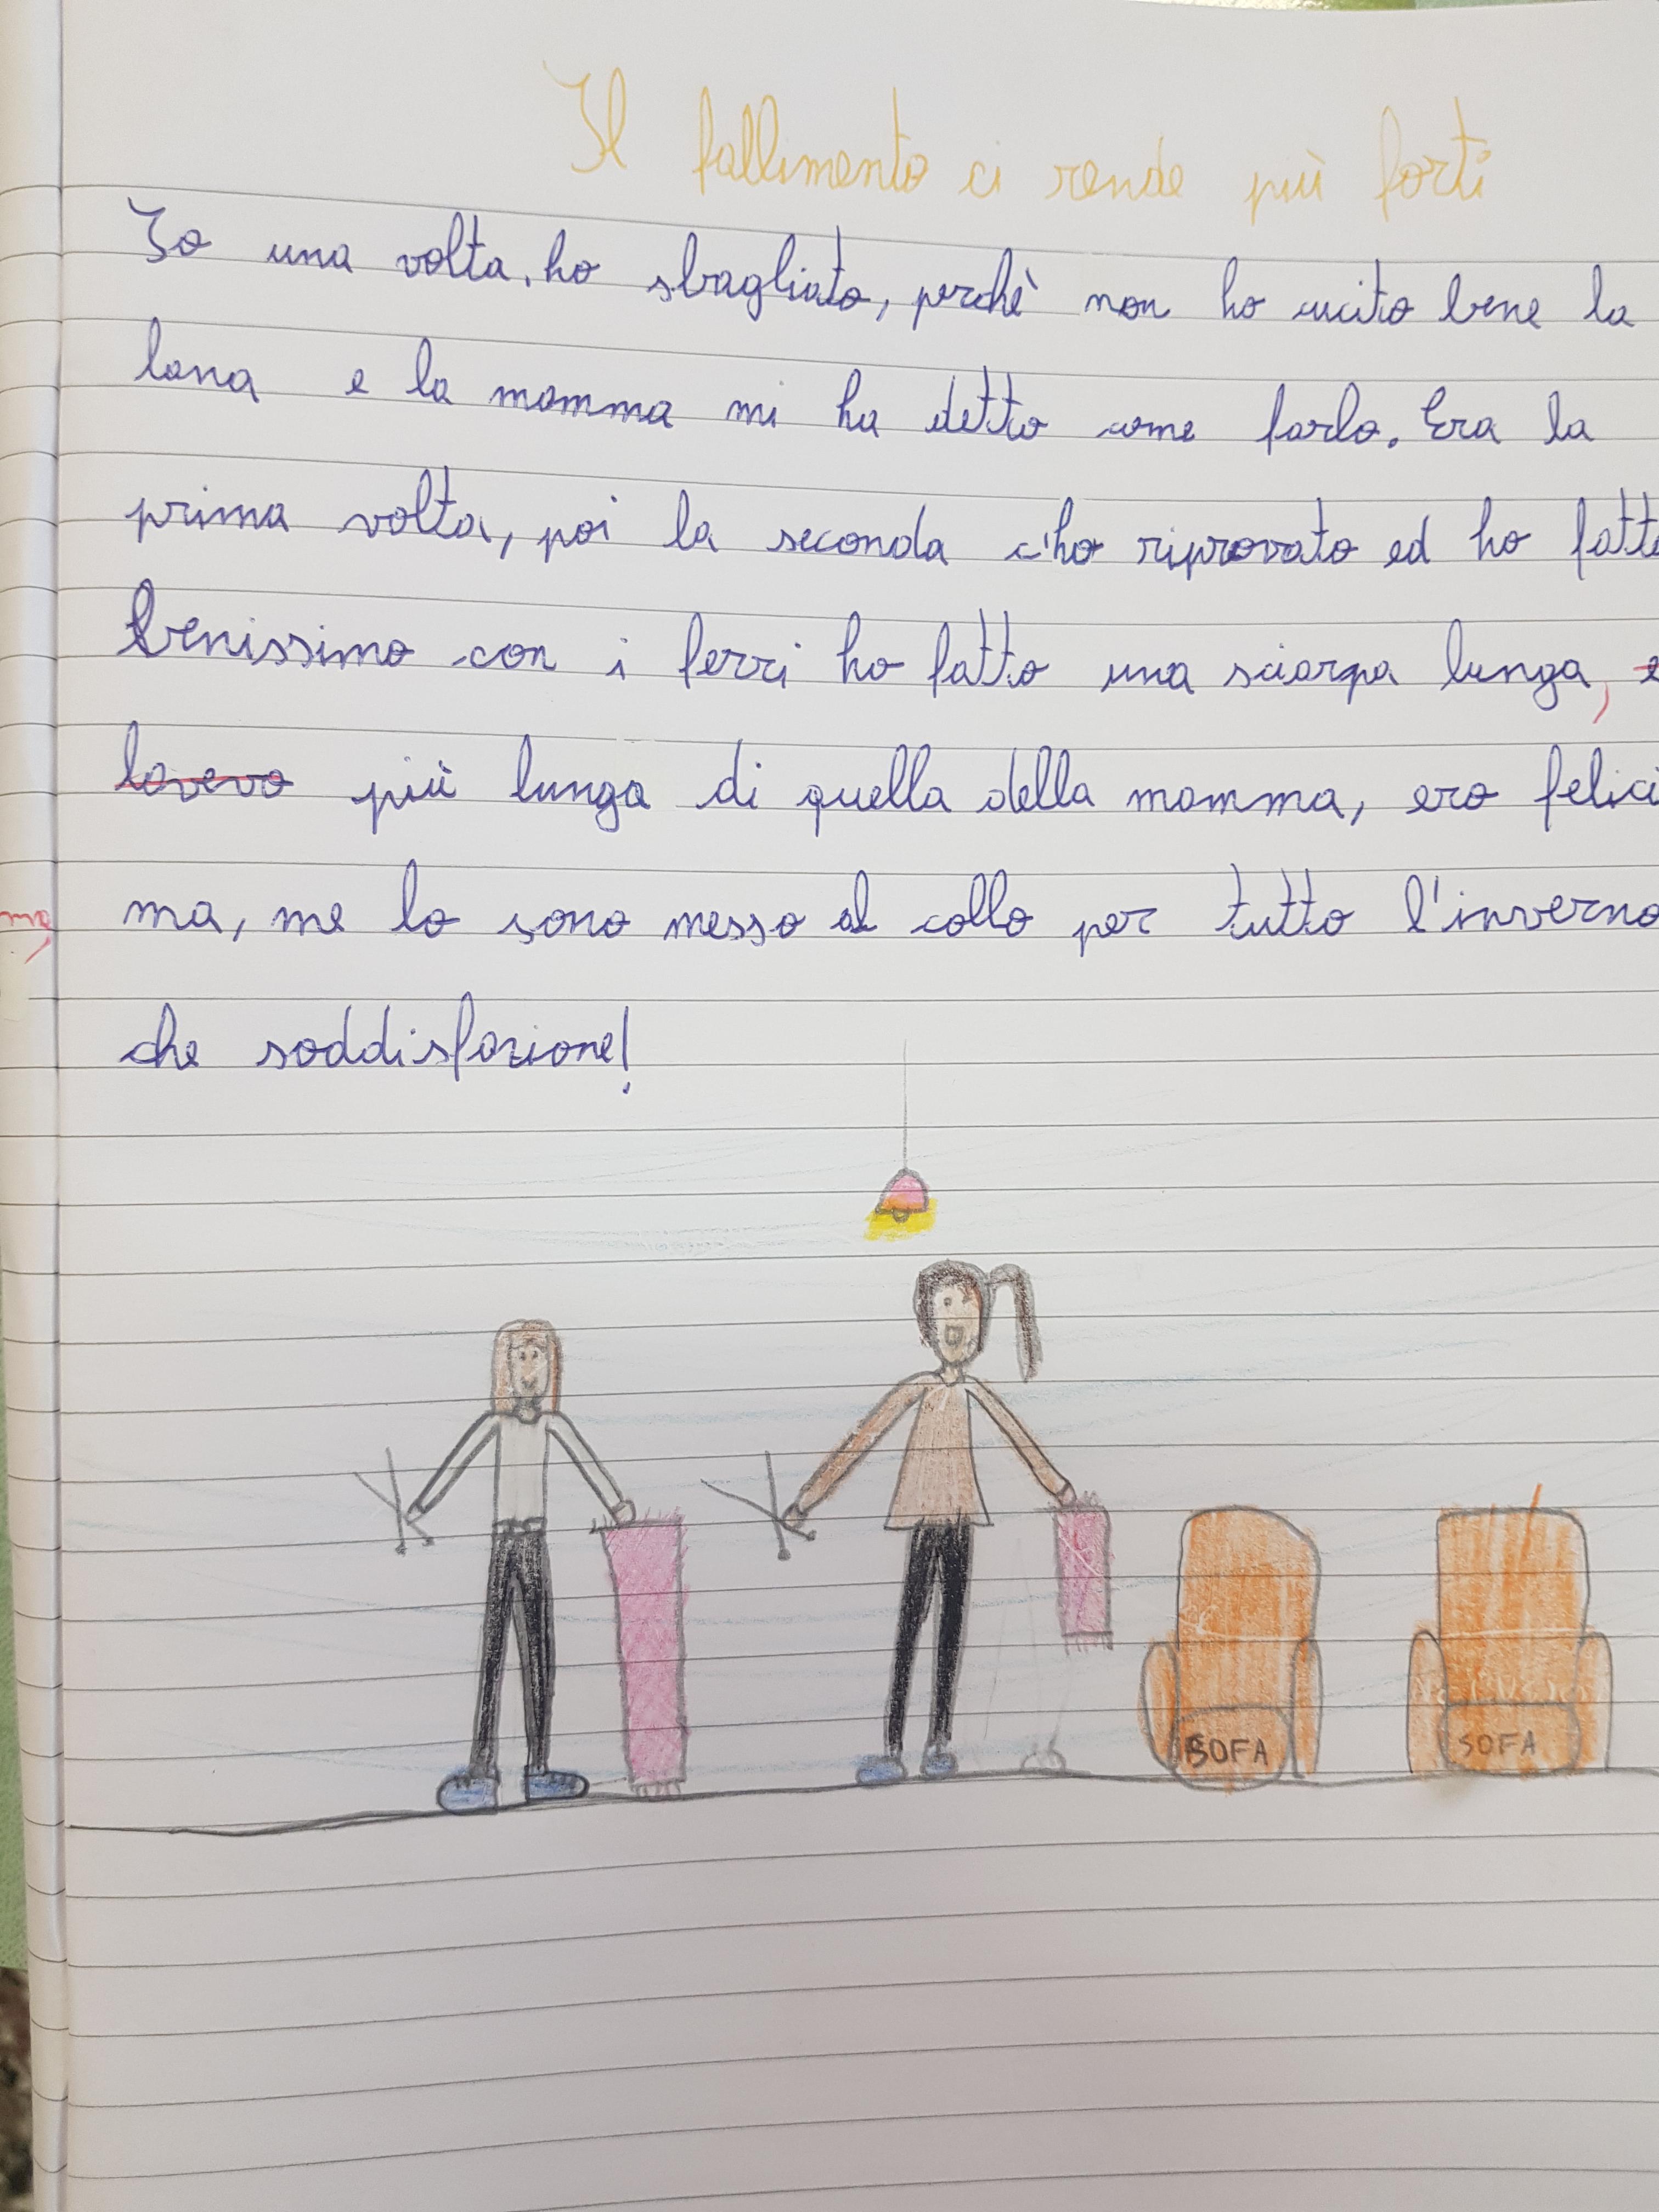 Il fallimento ci rende più forti
Io una volta, ho sbagliato, perchè non ho cucito bene la
lana e la mamma mi ha detto come farlo. Era la
prima volta, poi la seconda c'ho riprovato ed ho fatto
benissimo con i ferri ho fatto una sciarpa lunga, e
lavevo più lunga di quella della mamma, ero felici
ma, me lo sono messo al collo per tutto l'inverno
che soddisfazione!
SOFA SOFA